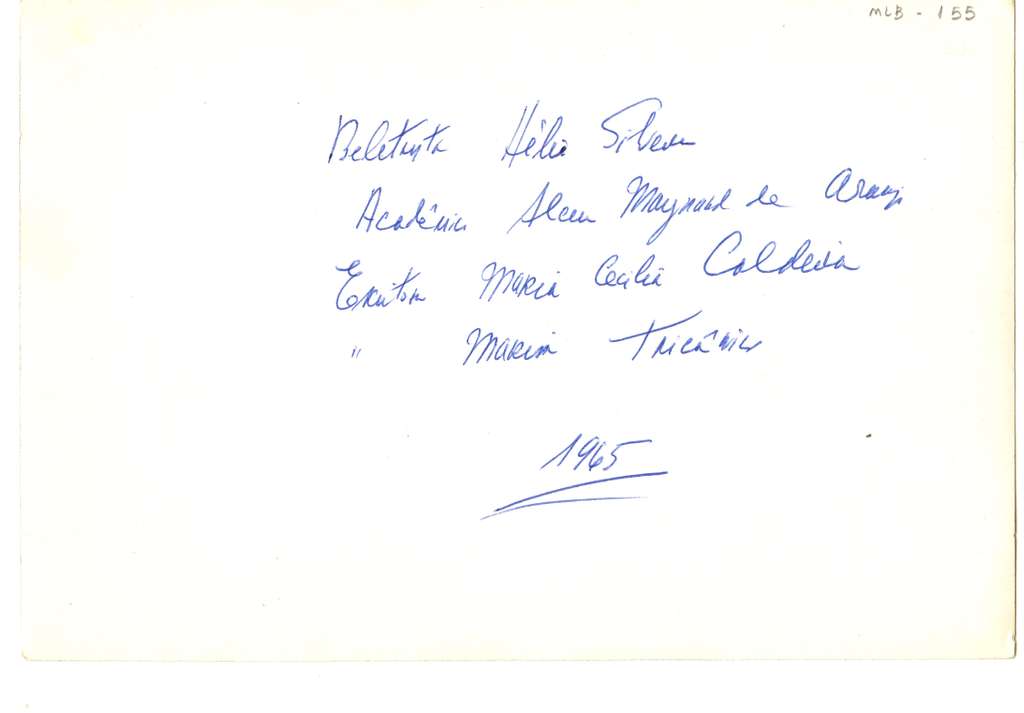 MLB - 155
Beletrista Hélio Silveira
Acadêmico Alceu Maynard de Araujo
Escritora Maria Cecilia Caldeira
" Maria Tricânico
1965